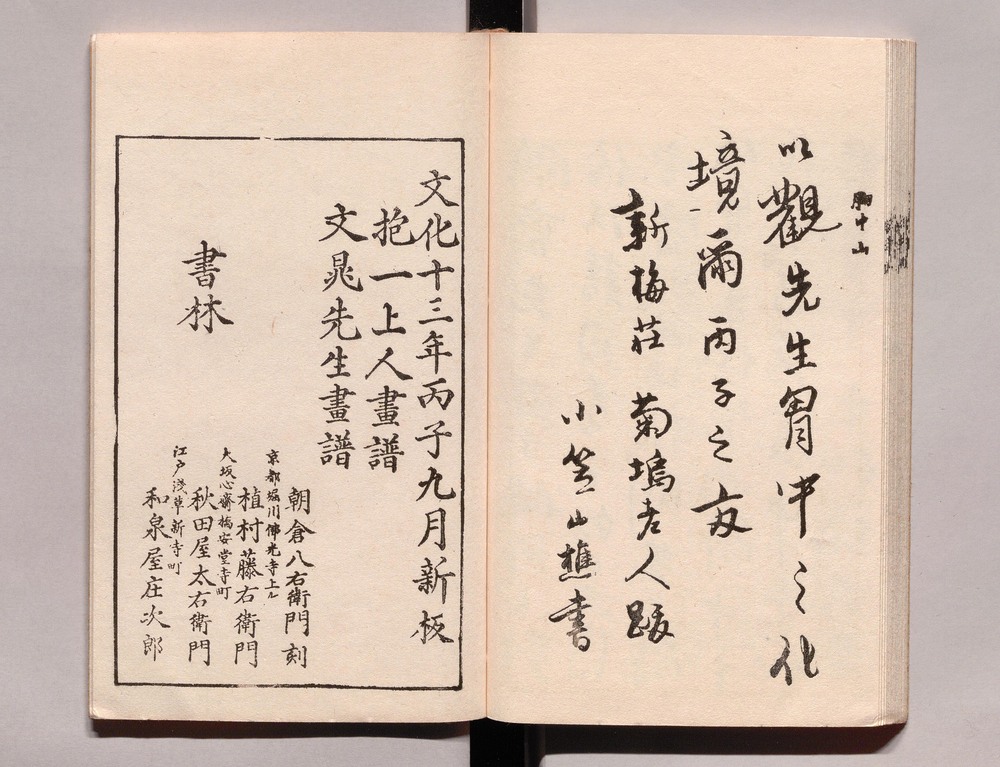 胸中山
以觀先生胷中之化
境爾丙子之夏
新梅莊 菊塢老人跋
小笠山樵書
文化十三年丙子九月新板
抱一上人畫譜
文晁先生畫譜
朝倉八右衛門刻
書林
京都堀川佛光寺上ル
植村藤右衛門
大坂心齋橋安堂寺町
秋田屋太右衛門
江戸浅草新寺町
和泉屋庄次郎